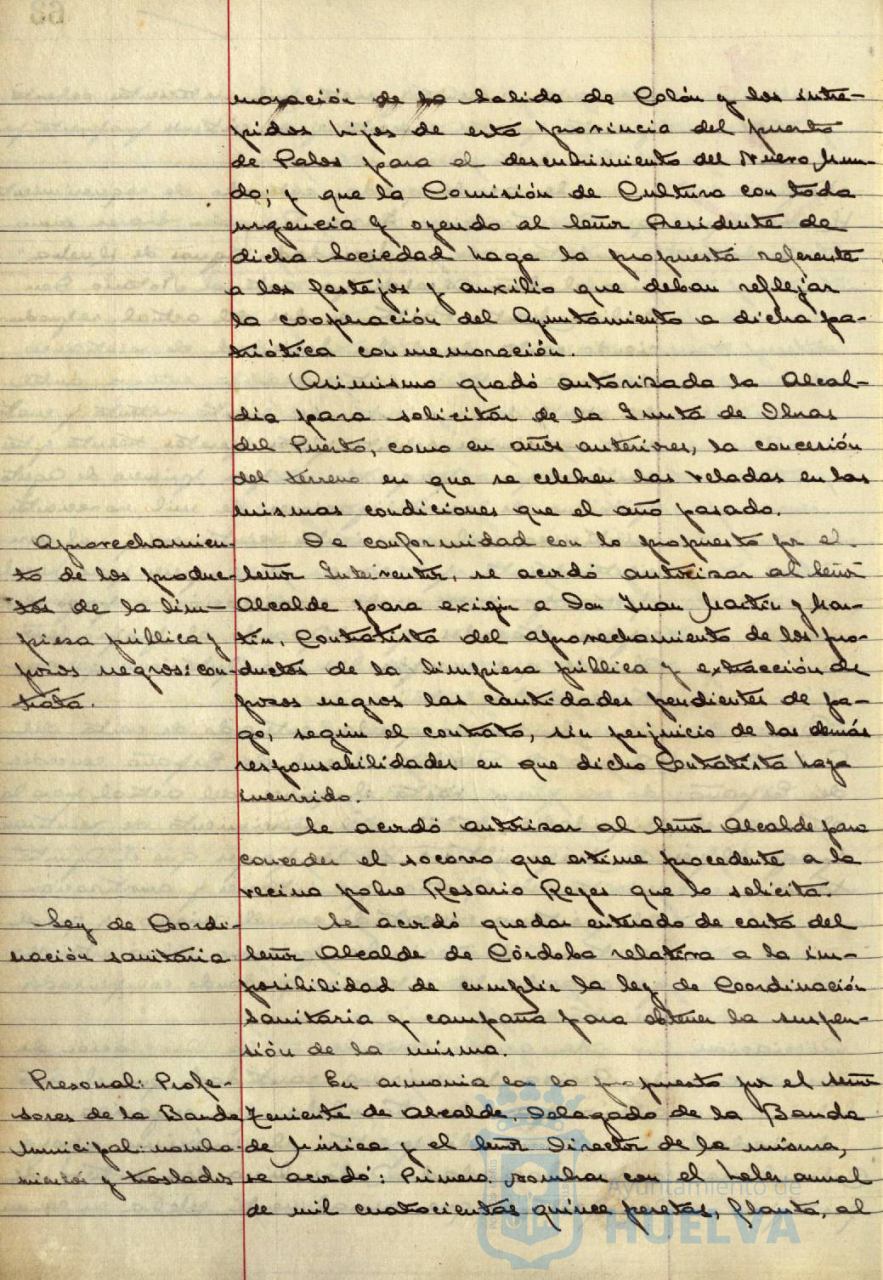 moración de la salida de Colón y los intré-
pidos hijos de esta provincia del puerto
de Palos para el descubrimiento del Nuevo Mun-
do; y que la Comisión de Cultura con toda
urgencia y oyendo al Señor Presidente de
dicha Sociedad haga la propuesta referente
a los festejos y auxilio que deban reflejar
la cooperación del Ayuntamiento a dicha pa-
triótica conmemoración.
Asimismo quedó autorizada la Alcal-
dia para solicitar de la Junta de Obras
del Puerto, como en años anteriores, la concesión
del terreno en que se celebren las veladas en las
mismas condiciones que el año pasado.
Aprovechamien-
to de los produc-
tos de la lim-
pieza pública y
pozos negros: con-
trata.
De conformidad con lo propuesto por el
Señor Interventor, se acordó autorizar al Señor
Alcalde para exigir a Don Juan Martin y Mar-
tin, Contratista del aprovechamiento de los pro-
ductos de la limpieza pública y extracción de
pozos negros las cantidades pendientes de pa-
go, según el contrato, sin perjuicio de las demás
responsabilidades en que dicho Contratista haya
incurrido.
Se acordó autorizar al Señor Alcalde para
conceder el socorro que estime procedente a la
vecina pobre Rosario Reyes que lo solicita.
Ley de Coordi-
nación sanitaria
Se acordó quedar enterado de carta del
Señor Alcalde de Córdoba relativa a la im-
posibilidad de cumplir la ley de Coordinación
Sanitaria y campaña para obtener la suspen-
sión de la misma.
Presonal: Profe-
sores de la Banda
Municipal: nombra-
mientos y traslados
En armonia con lo propuesto por el Señor
Teniente de Alcalde, Delegado de la Banda
de Música y el Señor Director de la misma,
se acordó: Primero. nombrar con el haber anual
de mil cuatrocientas quince pesetas, flauta, al
Ayuntamiento de
HUELVA